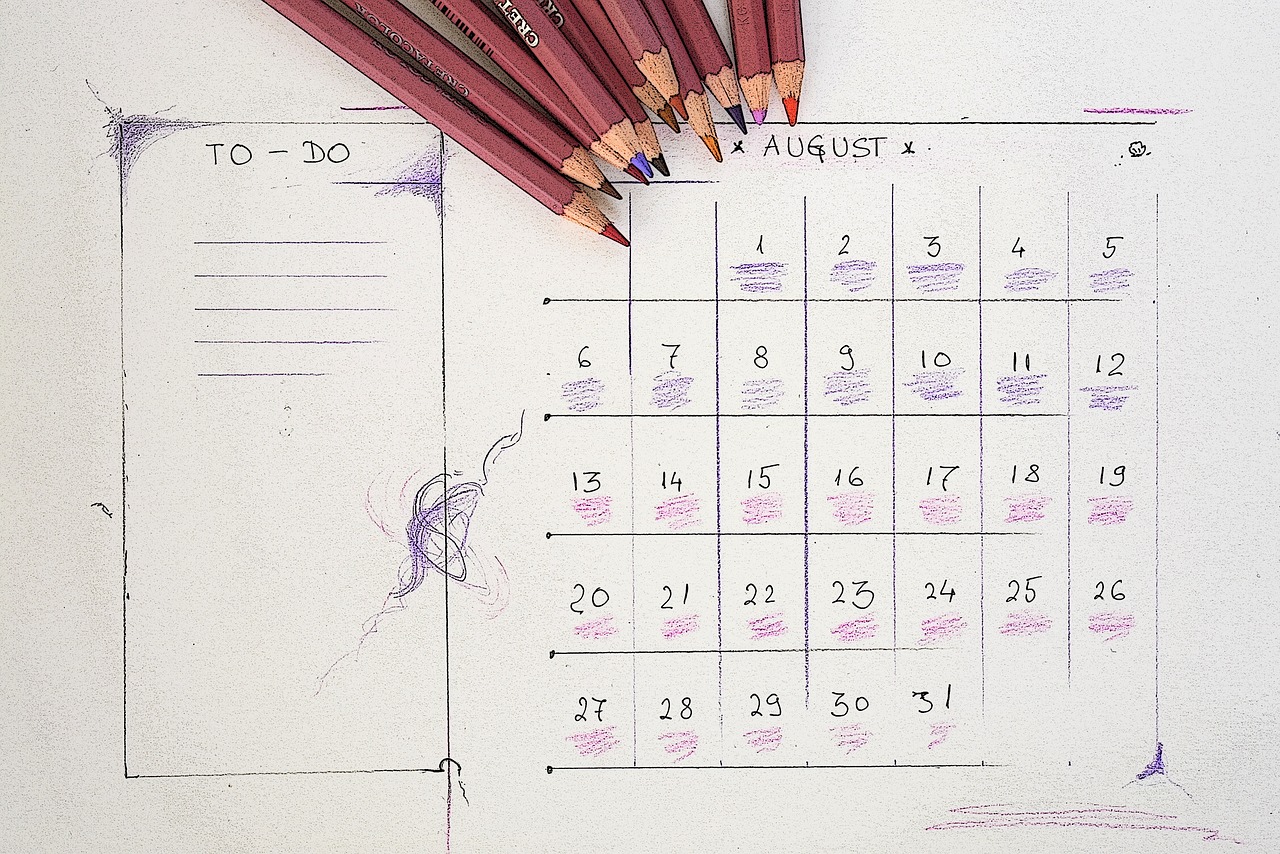 CRETACOLOR
CRET
CR
TO - DO
AUGUST
1 2 3 4 5
6 7 8 9 10 11 12
13 14 15 16 17 18 19
20 21 22 23 24 25 26
27 28 29 30 31